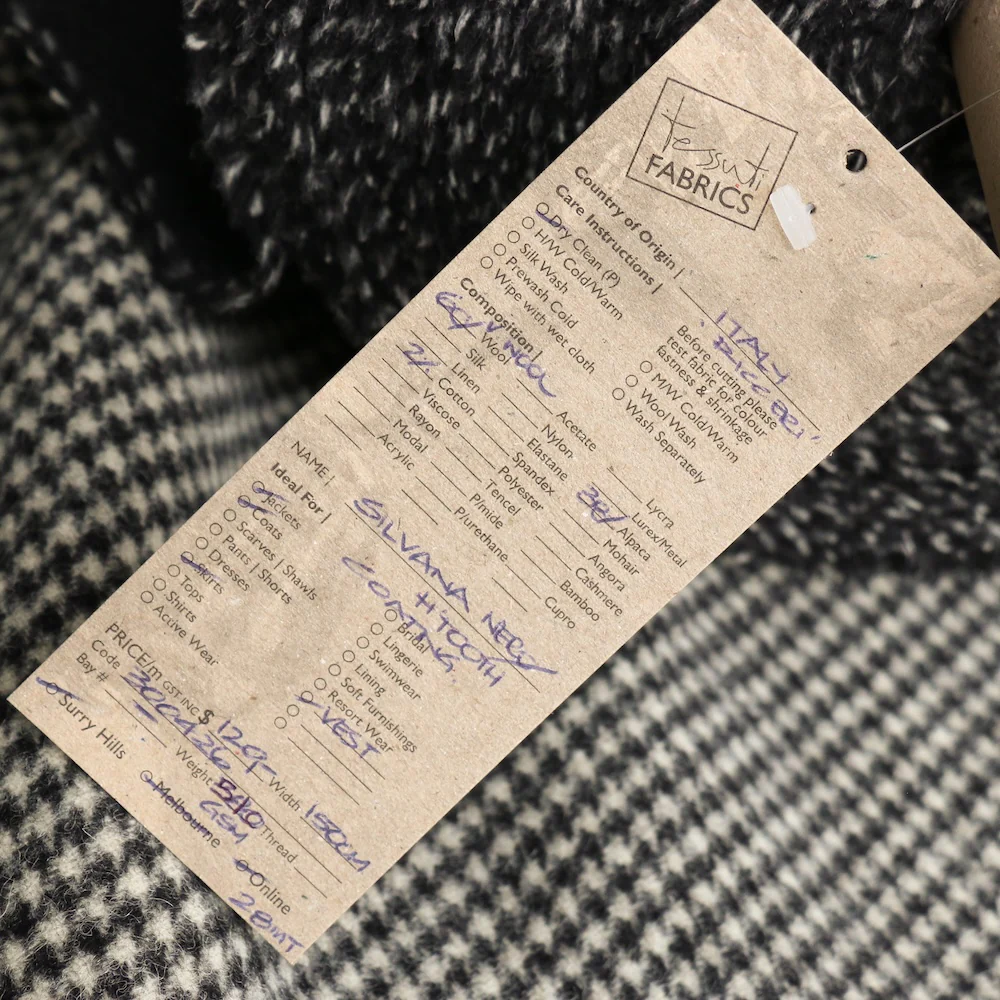 tessuti
FABRICS
Country of Origin | ITALY
RICCERI
Care Instructions |
Dry Clean (P)
H/W Cold/Warm
Silk Wash
Prewash Cold
Wipe with wet cloth
Before cutting please
test fabric for colour
fastness & shrinkage
M/W Cold/Warm
Wool Wash
Wash Separately
Composition |
Wool
V WOOL
Silk
Linen
2% Cotton
Viscose
Rayon
Modal
Acrylic
Acetate
Nylon
Elastane
Spandex
Polyester
Tencel
P/mide
P/urethane
Lycra
Lurex/Metal
Alpaca
Mohair
Angora
Cashmere
Bamboo
Cupro
NAME | SILVANA NERO
H TOOTH
COATING
Ideal For |
Jackets
Coats
Scarves | Shawls
Pants | Shorts
Dresses
Skirts
Tops
Shirts
Active Wear
Bridal
Lingerie
Swimwear
Lining
Soft Furnishings
Resort Wear
VEST
PRICE/m GST INC $ 129- Width 150CM
Code
Weight GSM Thread
Bay #
Surry Hills
Melbourne
Online
28MT